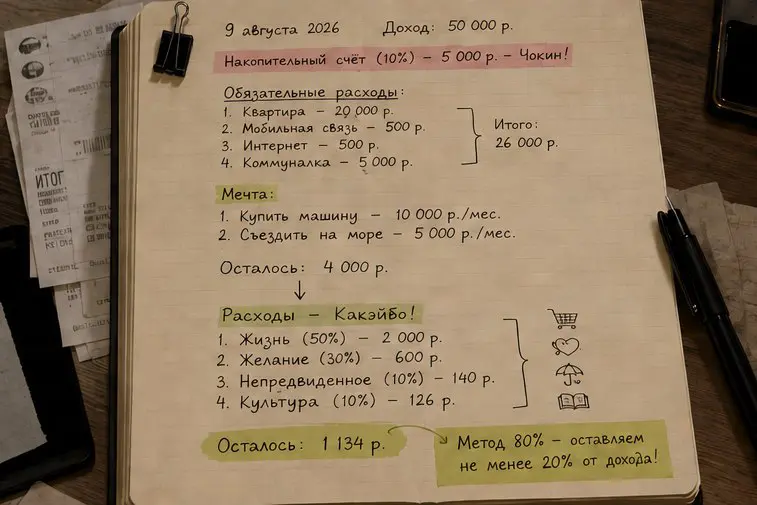 9 августа 2026 Доход: 50 000 р.
Накопительный счёт (10%) – 5 000 р. – Чокин!
Обязательные расходы:
1. Квартира – 20 000 р.
2. Мобильная связь – 500 р.
3. Интернет – 500 р.
4. Коммуналка – 5 000 р.
Итого:
26 000 р.
Мечта:
1. Купить машину – 10 000 р./мес.
2. Съездить на море – 5 000 р./мес.
Осталось: 4 000 р.
Расходы – Какэйбо!
1. Жизнь (50%) – 2 000 р.
2. Желание (30%) – 600 р.
3. Непредвиденное (10%) – 140 р.
4. Культура (10%) – 126 р.
Осталось: 1 134 р.
Метод 80% – оставляем
не менее 20% от дохода!
ИТОГ